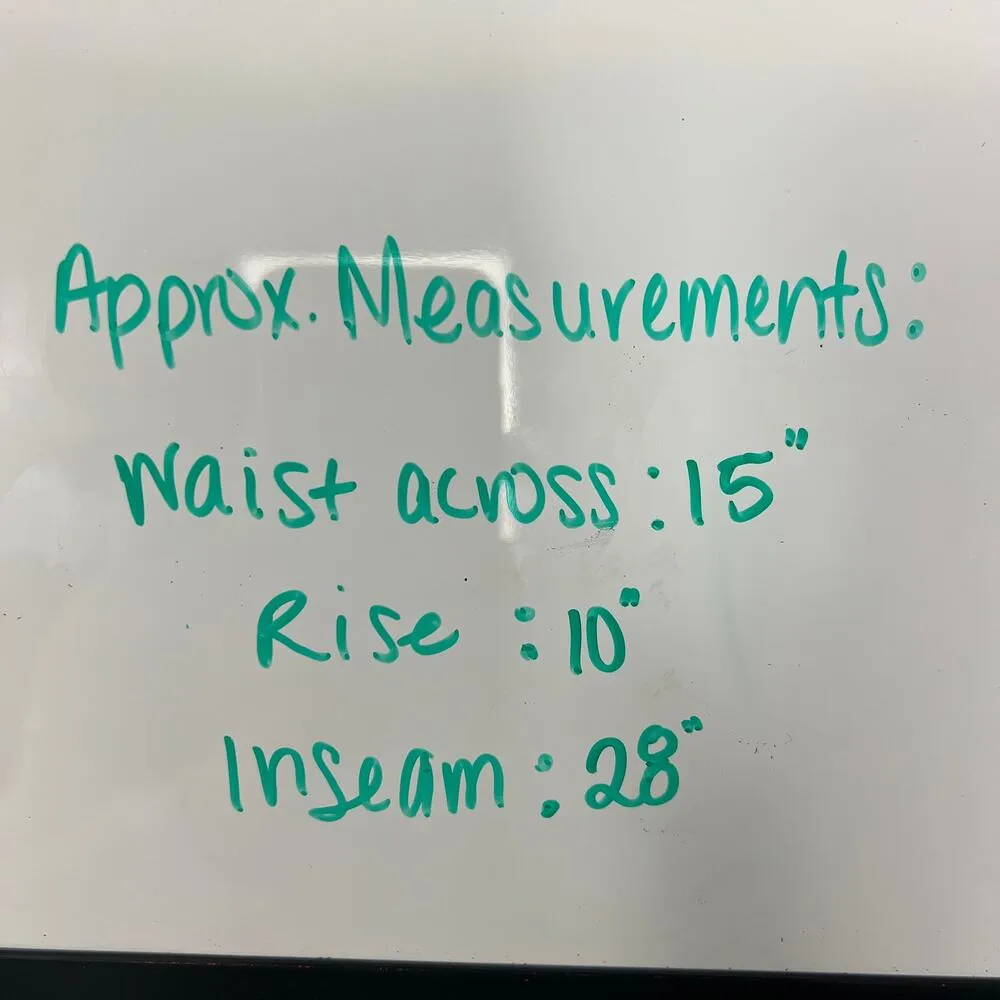 Approx. Measurements:
Waist across: 15"
Rise : 10"
Inseam: 28"